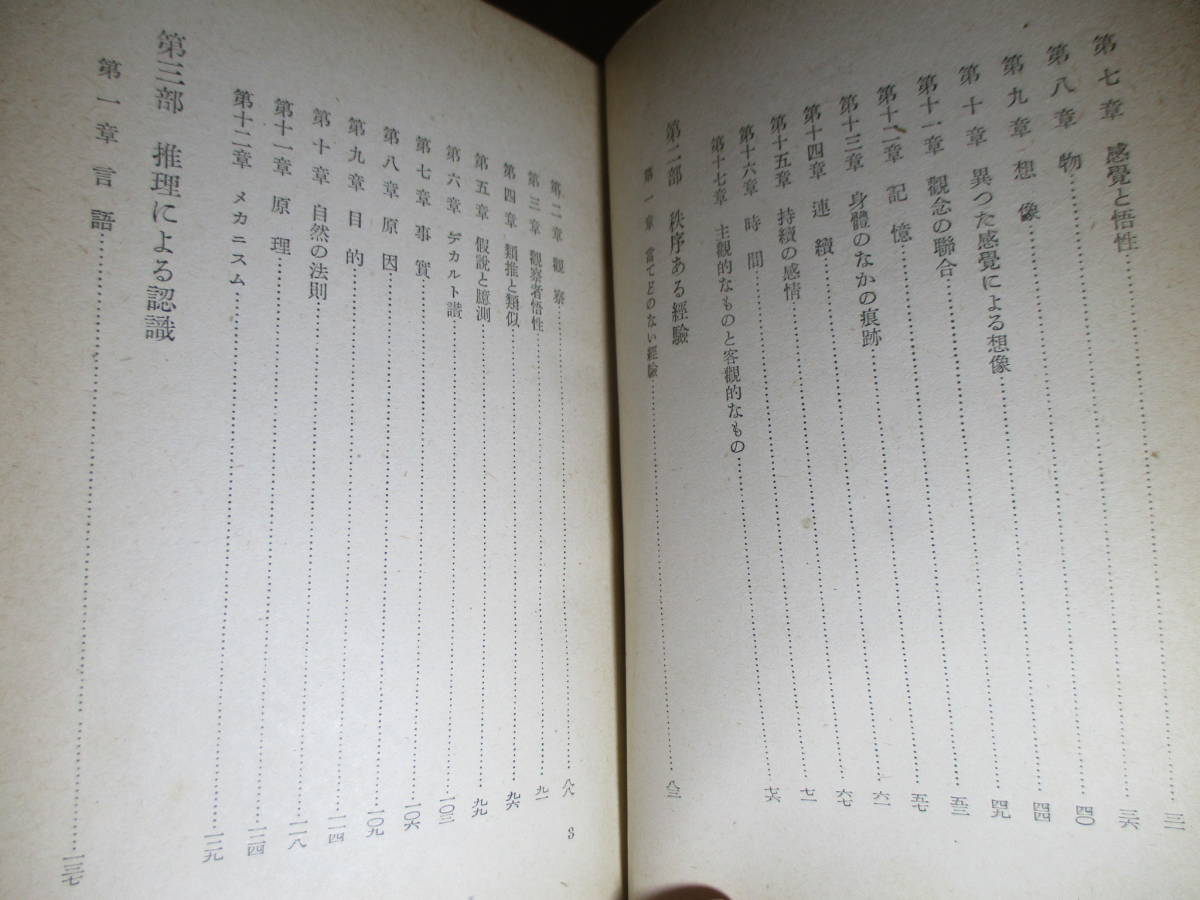 三一
第七章 感覺と悟性……三六
第八章 物……四〇
第九章 想像……四四
第十章 異つた感覺による想像……四九
第十一章 觀念の聯合……五三
第十二章 記憶……五七
第十三章 身體のなかの痕跡……六一
第十四章 連續……六七
第十五章 持續の感情……七一
第十六章 時間……七六
第十七章 主觀的なものと客觀的なもの……
第二部 秩序ある經驗
第一章 當てどのない經驗……八三
第二章 觀察……八八
第三章 觀察者悟性……九一
第四章 類推と類似……九六
第五章 假說と臆測……九九
第六章 デカルト讃……一〇三
第七章 事實……一〇六
第八章 原因……一〇九
第九章 目的……一一四
第十章 自然の法則……一一八
第十一章 原理……一二四
第十二章 メカニスム……一二九
第三部 推理による認識
第一章 言語……一三七
3